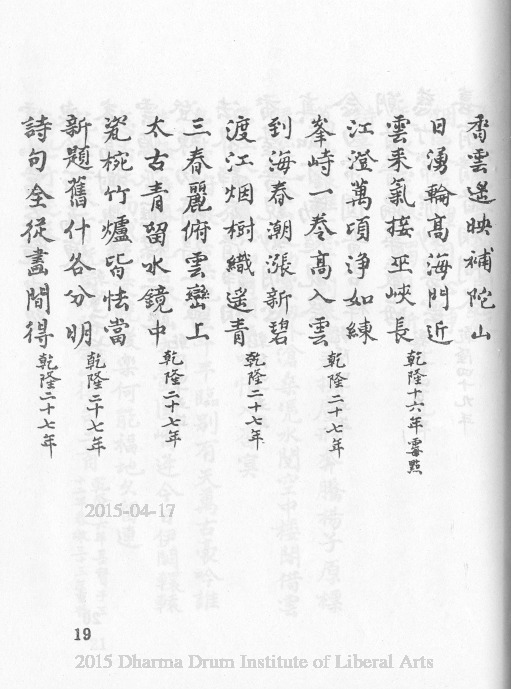 香雲遥映補陀山
日湧輪高海門近
雲来氣接巫峽長 乾隆十六年 霽點
江澄萬頃净如練
峯峙一卷高入雲 乾隆二十七年
到海春潮漲新碧
渡江烟樹織遥青 乾隆二十七年
三春麗俯雲巒上
太古青留水鏡中 乾隆二十七年
瓷椀竹爐皆怯當
新題舊什各分明 乾隆二十七年
詩句全從畫間得 乾隆二十七年
2015-04-17
19
2015 Dharma Drum Institute of Liberal Arts